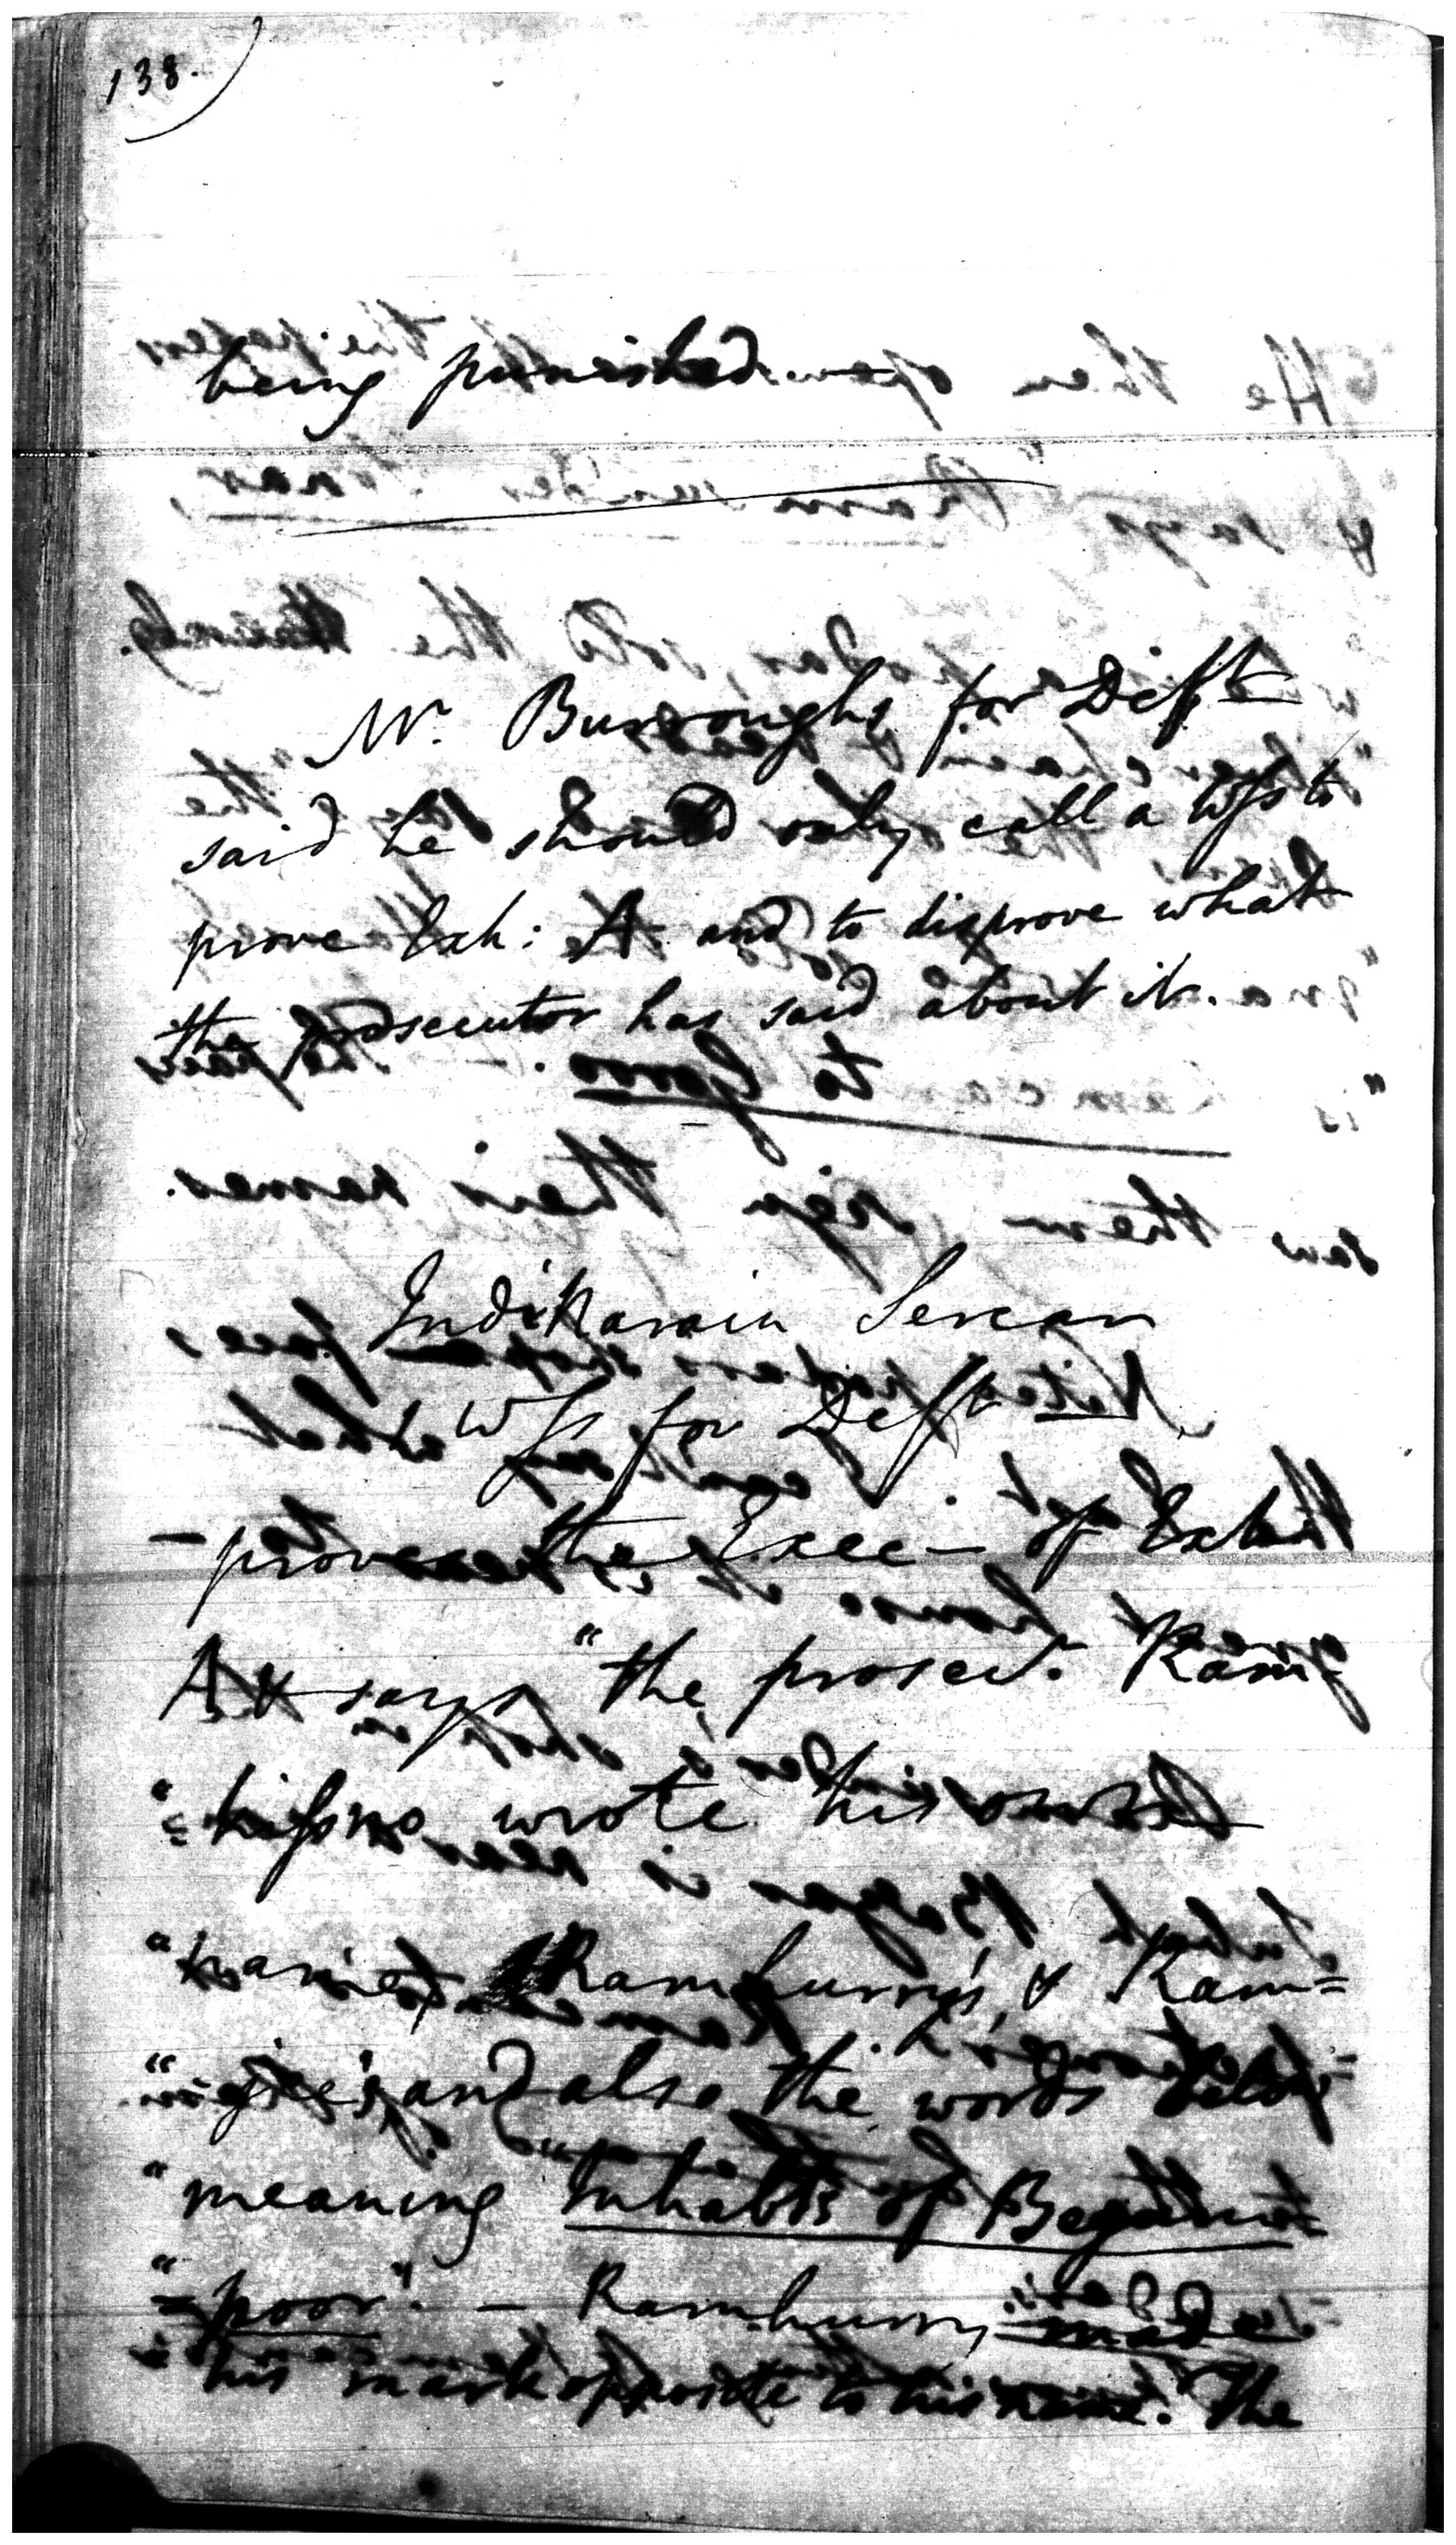 138.
being punished.
Mr. Burroughs for Deft
said he should only call a Wss to
prove Exh: A and to disprove what
the prosecutor has said about it.
Indinarain Sercar
Wss for Deft
proves the Exec— of Exh
A & says "the prosect. Ram
"=kissno wrote his own
"name, Ramhurry's & Ram=
" and also the words
"meaning Inhabts of
"=poor". — Ramhurry made
his mark opposite to his name. The